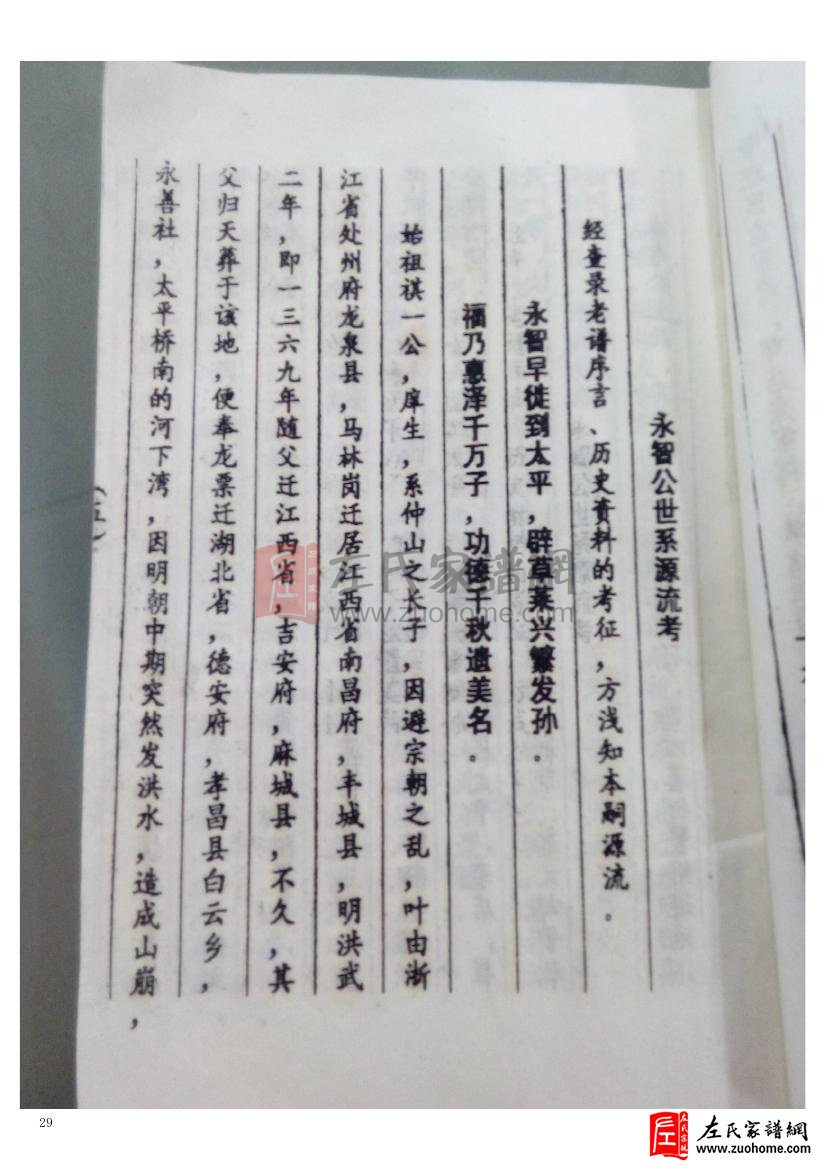 永智公世系源流考
经查录老谱序言、历史资料的考征，方浅知本嗣源流。
永智早徙到太平，辟草莱兴繁发孙。
福乃惠泽千万子，功德千秋遗美名。
始祖祺一公，庠生，系仲山之长子，因避宗朝之乱，叶由浙
江省处州府龙泉县，马林岗迁居江西省南昌府，丰城县，明洪武
二年，即一三六九年随父迁江西省，吉安府，麻城县，不久，其
父归天葬于该地，便奉龙票迁湖北省，德安府，孝昌县白云乡，
永善社，太平桥南的河下湾，因明朝中期突然发洪水，造成山崩，
左氏家譜網
www.zuohome.com
29
左氏家譜網
www.zuohome.com